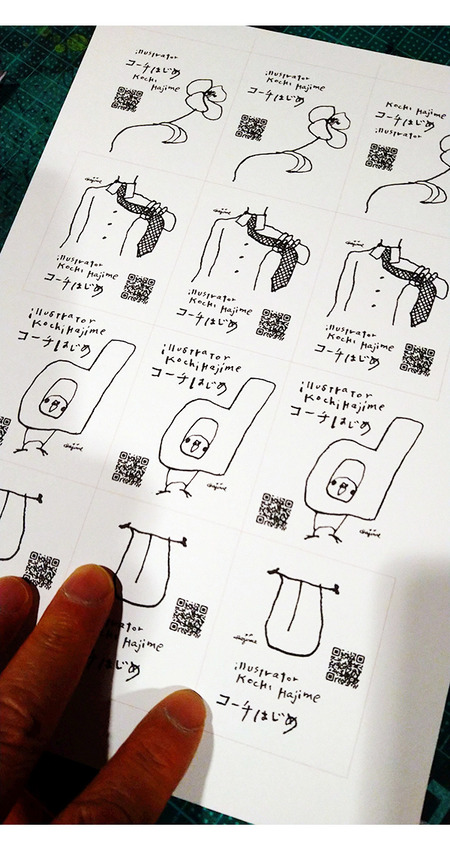 illustrator
コーチはじめ
Kochi
Hajime
illustrator
コーチはじめ
Kochi Hajime
Kochi Hajime
コーチはじめ
illustrator
hajime
illustrator
Kochi Hajime
コーチはじめ
hajime
illustrator
Kochi Hajime
コーチはじめ
hajime
illustrator
Kochi Hajime
コーチはじめ
illustrator
Kochi Hajime
コーチはじめ
hajime
illustrator
Kochi Hajime
コーチはじめ
hajime
illustrator
Kochi Hajime
コーチはじめ
hajime
Hajime
はじめ
hajime
illustrator
Kochi Hajime
コーチはじめ